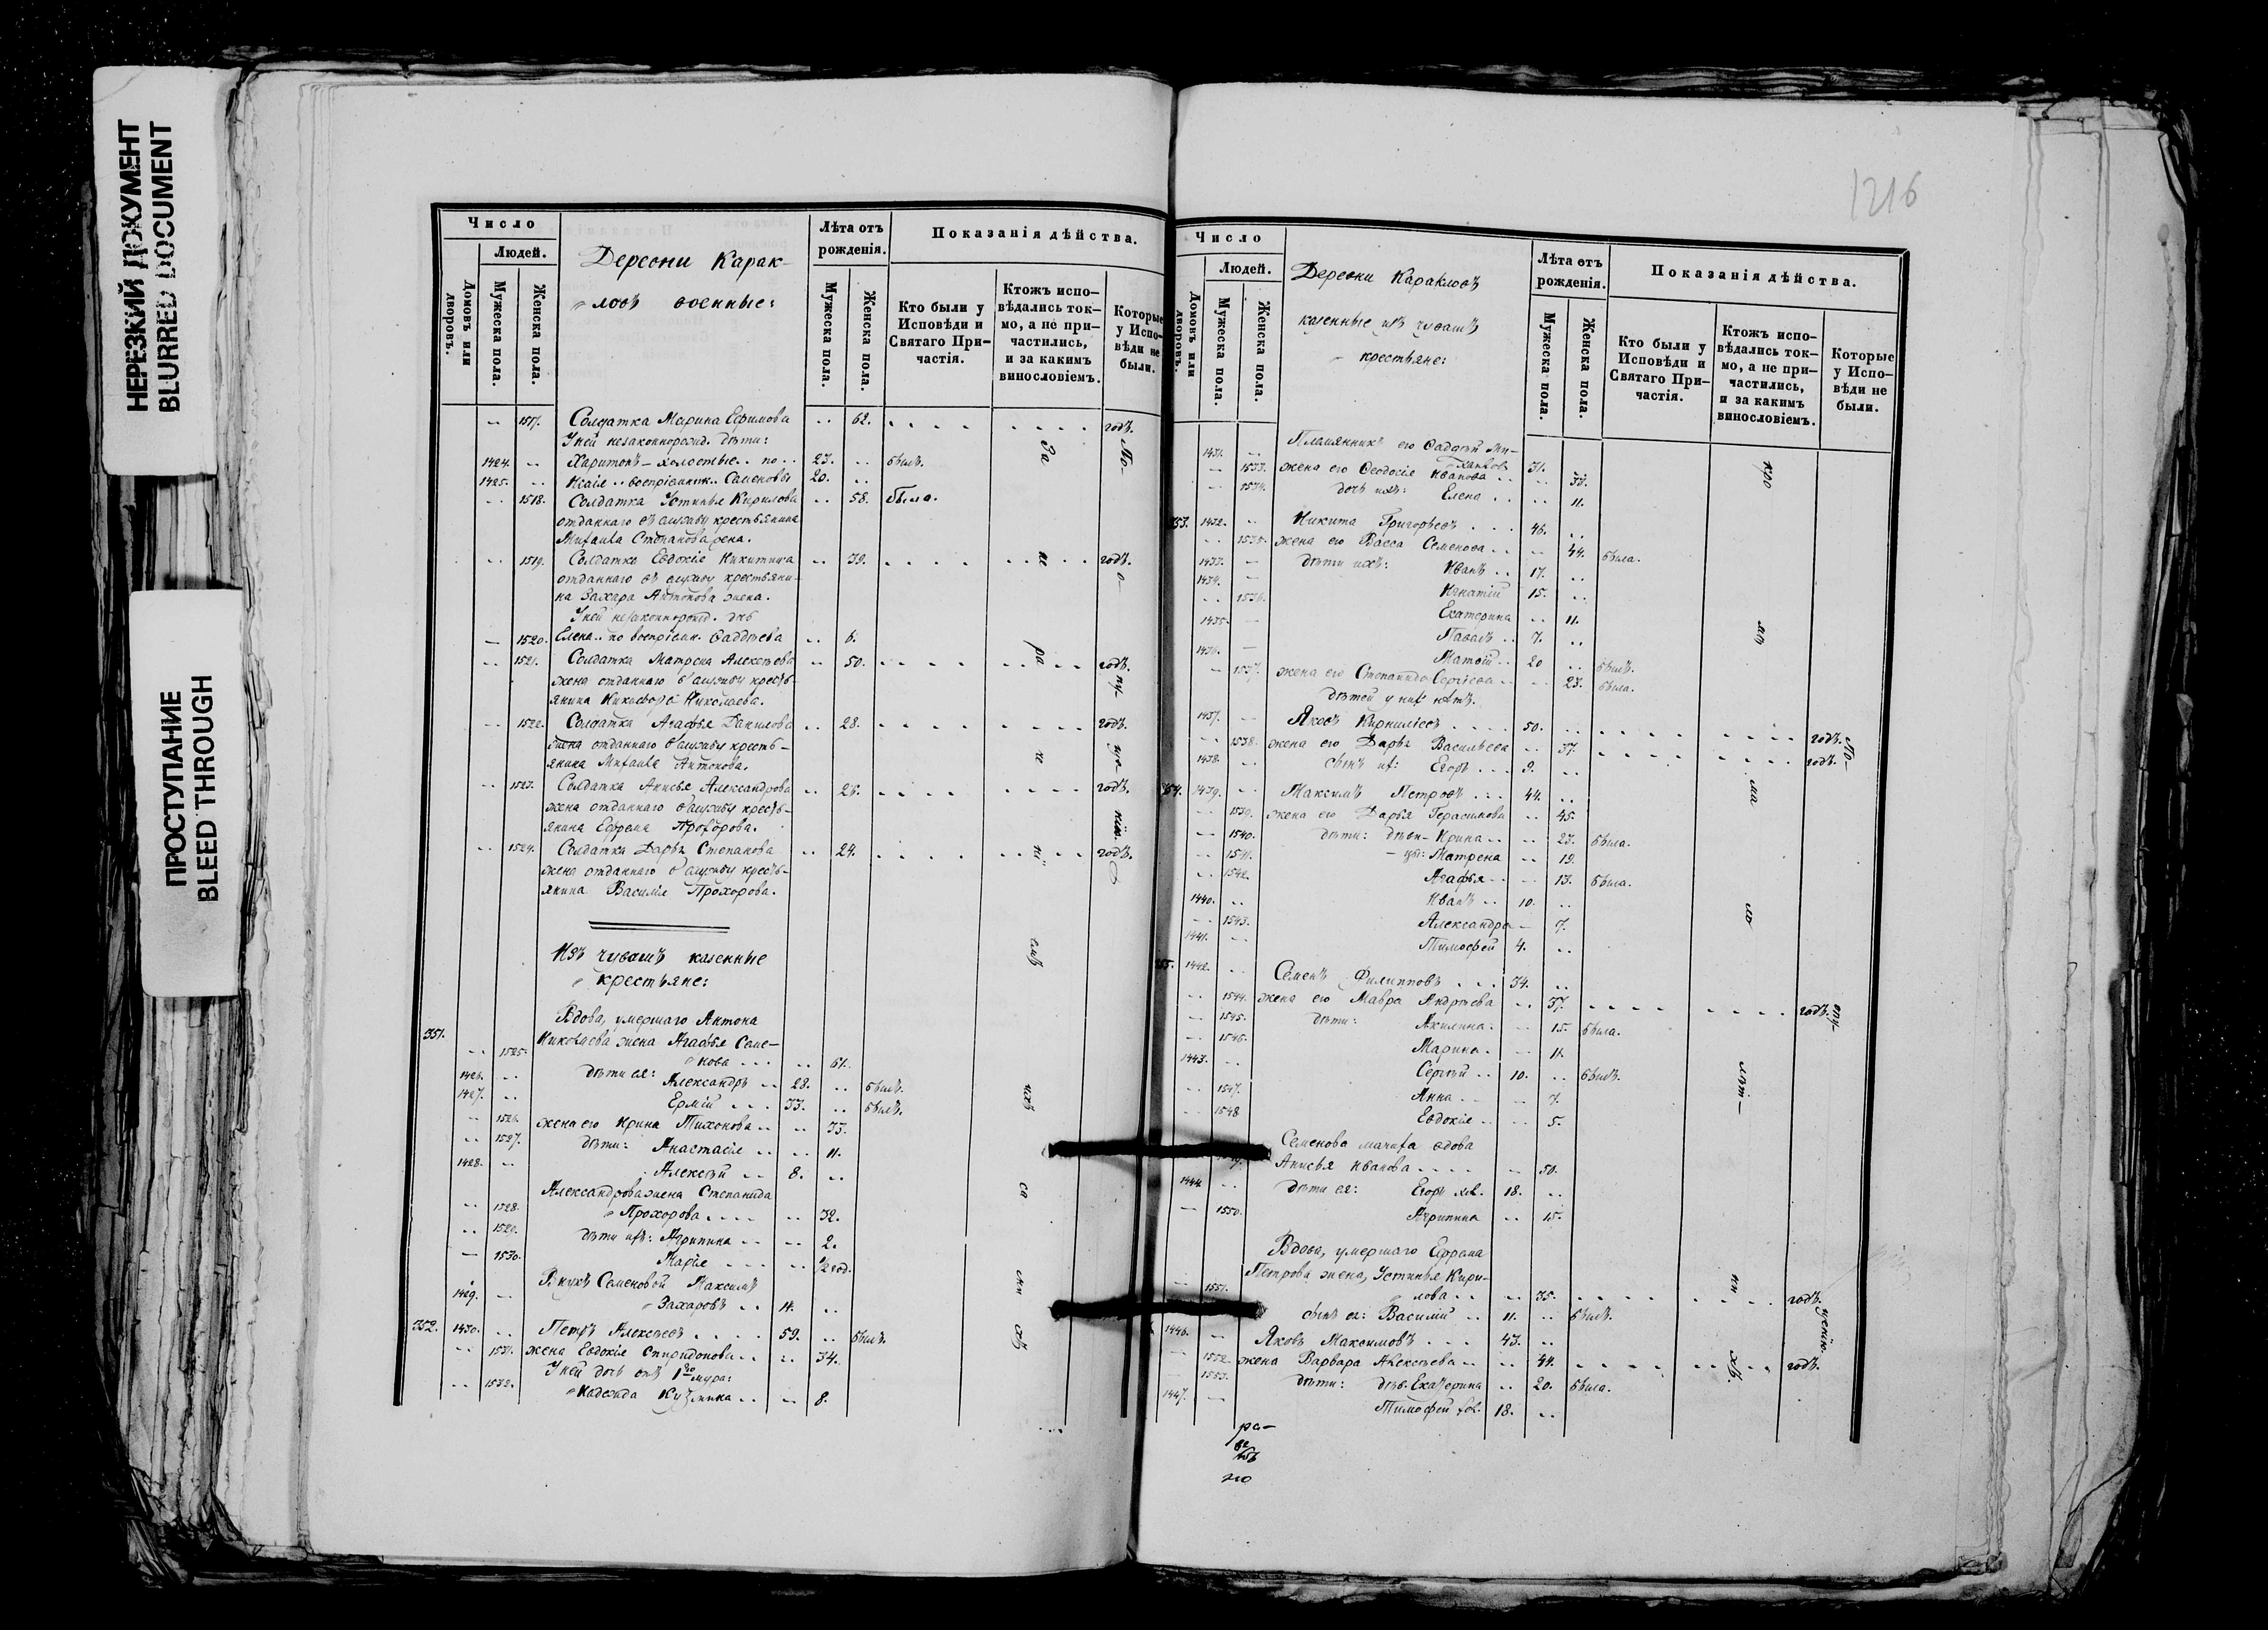 НЕРЕЗКИЙ ДОКУМЕНТ
BLURRED DOCUMENT
ПРОСТУПАНИЕ
BLEED THROUGH
1216
Число
Людей.
Домовъ или дворовъ.
Мужеска пола.
Женска пола.
Деревни Карак-
ловъ военные:
Лѣта отъ рожденія.
Мужеска пола.
Женска пола.
Показанія дѣйства.
Кто были у Исповѣди и Святаго При-частія.
Ктожъ испо-вѣдались ток-мо, а не при-частились, и за какимъ винословіемъ.
Которые у Испо-вѣди не были.
.. 1517. Солдатка Марина Ефимова .. 62. годъ.
У ней незаконнорожд. дѣти:
1424. .. Харитонъ - холостые .. по .. 23. .. былъ.
1425. .. Исаія .. воспріемник. Семеновы 20. ..
.. 1518. Солдатка Устинья Кирилова .. 58. была.
отданнаго въ службу крестьянина
Михаила Степанова жена.
.. 1519. Солдатка Евдокія Никитина .. 39. годъ.
отданнаго въ службу крестьяни-
на Захара Антонова жена.
У ней незаконнорожд. дчь
— 1520. Елена .. по воспріемн. Фаддѣева .. 6.
.. 1521. Солдатка Матрена Алексѣева .. 50. годъ.
жена отданнаго в службу кресть-
янина Никифора Николаева.
.. 1522. Солдатка Агафья Данилова .. 28. годъ.
жена отданнаго в службу кресть-
янина Михаила Антонова.
.. 1523. Солдатка Анисья Александрова .. 28. годъ.
жена отданнаго в службу кресть-
янина Ефрема Прохорова.
.. 1524. Солдатка Дарья Степанова .. 24. годъ.
жена отданнаго в службу кресть-
янина Василія Прохорова.
Изъ чувашъ казенные
крестьяне:
351. Вдова, умершаго Антона
Николаева жена Агафья Семе-
.. 1525. нова .. 61.
1426. .. дѣти ея: Александръ .. 28. .. былъ.
1427. .. Ермій 33. .. былъ.
.. 1526. жена его Ирина Тихонова .. .. 33.
.. 1527. дѣти: Анастасія .. .. 11.
1428. .. Алексѣй .. 8. ..
Александрова жена Степанида
.. 1528. Прохорова .. 32.
.. 1529. дѣти ихъ: Агрипина .. .. 2.
— 1530. Марія .. ½ год.
Внукъ Семеновой Максимъ
1429. — Захаровъ .. 14. ..
352. 1430. .. Петръ Алексѣевъ 59. .. былъ.
.. 1531. жена Евдокія Спиридонова .. .. 34.
У ней дочь отъ 1го мужа:
.. 1532. Надежда Кузмина .. .. 8.
За
не
ра
че
ні
емъ
ихъ
со
сихъ
По
Число
Людей.
Домовъ или дворовъ.
Мужеска пола.
Женска пола.
Деревни Каракловъ
казенные изъ чувашъ
крестьяне:
Лѣта отъ рожденія.
Мужеска пола.
Женска пола.
Показанія дѣйства.
Кто были у Исповѣди и Святаго При-частія.
Ктожъ испо-вѣдались ток-мо, а не при-частились, и за какимъ винословіемъ.
Которые у Испо-вѣди не были.
1431. .. Племянникъ его Фадѣй Ми-
хайлов. 31.
— 1533. жена его Ѳеодосія Иванова .. .. 33.
— 1534. дочь ихъ: Елена .. .. 11.
353. 1432. .. Никита Григорьевъ 46. ..
.. 1535. жена его Васса Семенова .. — 44. была.
1433. — дѣти ихъ: Иванъ .. 17. ..
1434. — Игнатій 15. ..
.. 1536. Екатерина .. 11.
1435. — Павелъ .. 7. ..
1436. — Матвѣй .. 20 .. былъ.
— 1537. жена его Степанида Сергѣева — 23. была.
дѣтей у них нѣтъ.
1437. — Яковъ Кириловъ 50. .. годъ.
.. 1538. жена его Дарья Васильева .. 37. годъ.
1438. .. сынъ их: Егоръ 9. ..
354. 1439. .. Максимъ Петровъ 44. ..
.. 1539. жена его Дарья Герасимова .. 45.
— 1540. дѣти: дѣви- Ирина .. .. 23. была.
.. 1541. цы: Матрена .. 19.
.. 1542. Агафья .. — 13. была.
1440. .. Иванъ .. 10. ..
.. 1543. Александра — 7.
1441. .. Тимофей 4. ..
355. 1442. .. Семенъ Филипповъ 34. ..
.. 1544. жена его Мавра Андрѣева .. 37. годъ.
.. 1545. дѣти: Акилина — 15. была.
.. 1546. Марина — 11.
1443. .. Сергѣй .. 10. .. былъ.
.. 1547. Анна .. — 7.
.. 1548. Евдокія .. 5.
Семенова мачиха вдова
Анисья Иванова — 50.
1444. .. дѣти ея: Егоръ хол. 18. ..
— 1550. Агрипина .. 15.
Вдова, умершаго Ефрема
Петрова жена, Устинья Кири-
1551. лова .. .. 35. годъ.
сынъ ея: Василій .. 11. .. былъ.
1446. — Яковъ Максимовъ 43. ..
1552. жена Варвара Алексѣева .. .. 44. годъ.
1553. дѣти: дѣв. Екатерина .. 20. была.
1447. — Тимофей хол. 18. ..